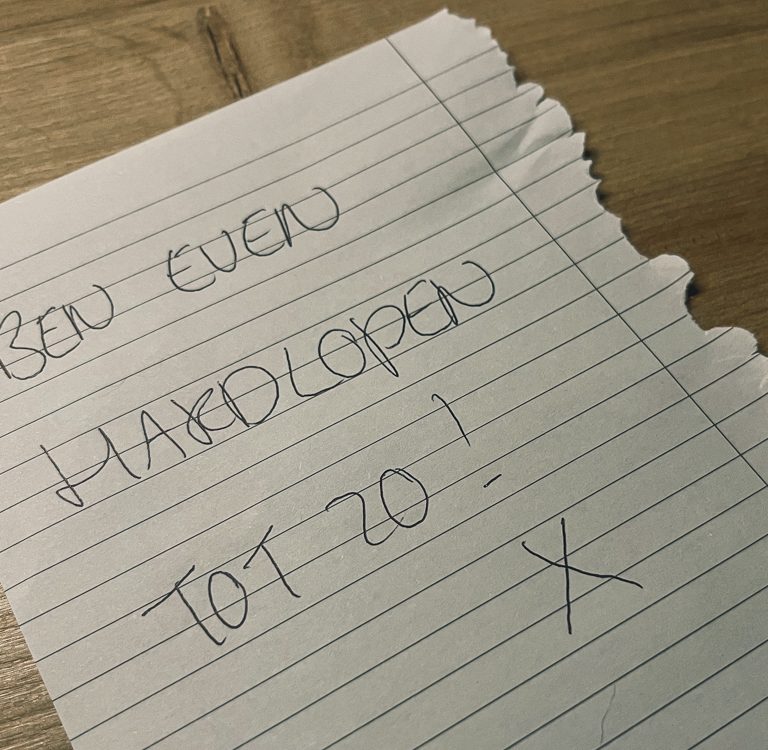 BEN EVEN
HARDLOPEN
TOT 20!
X